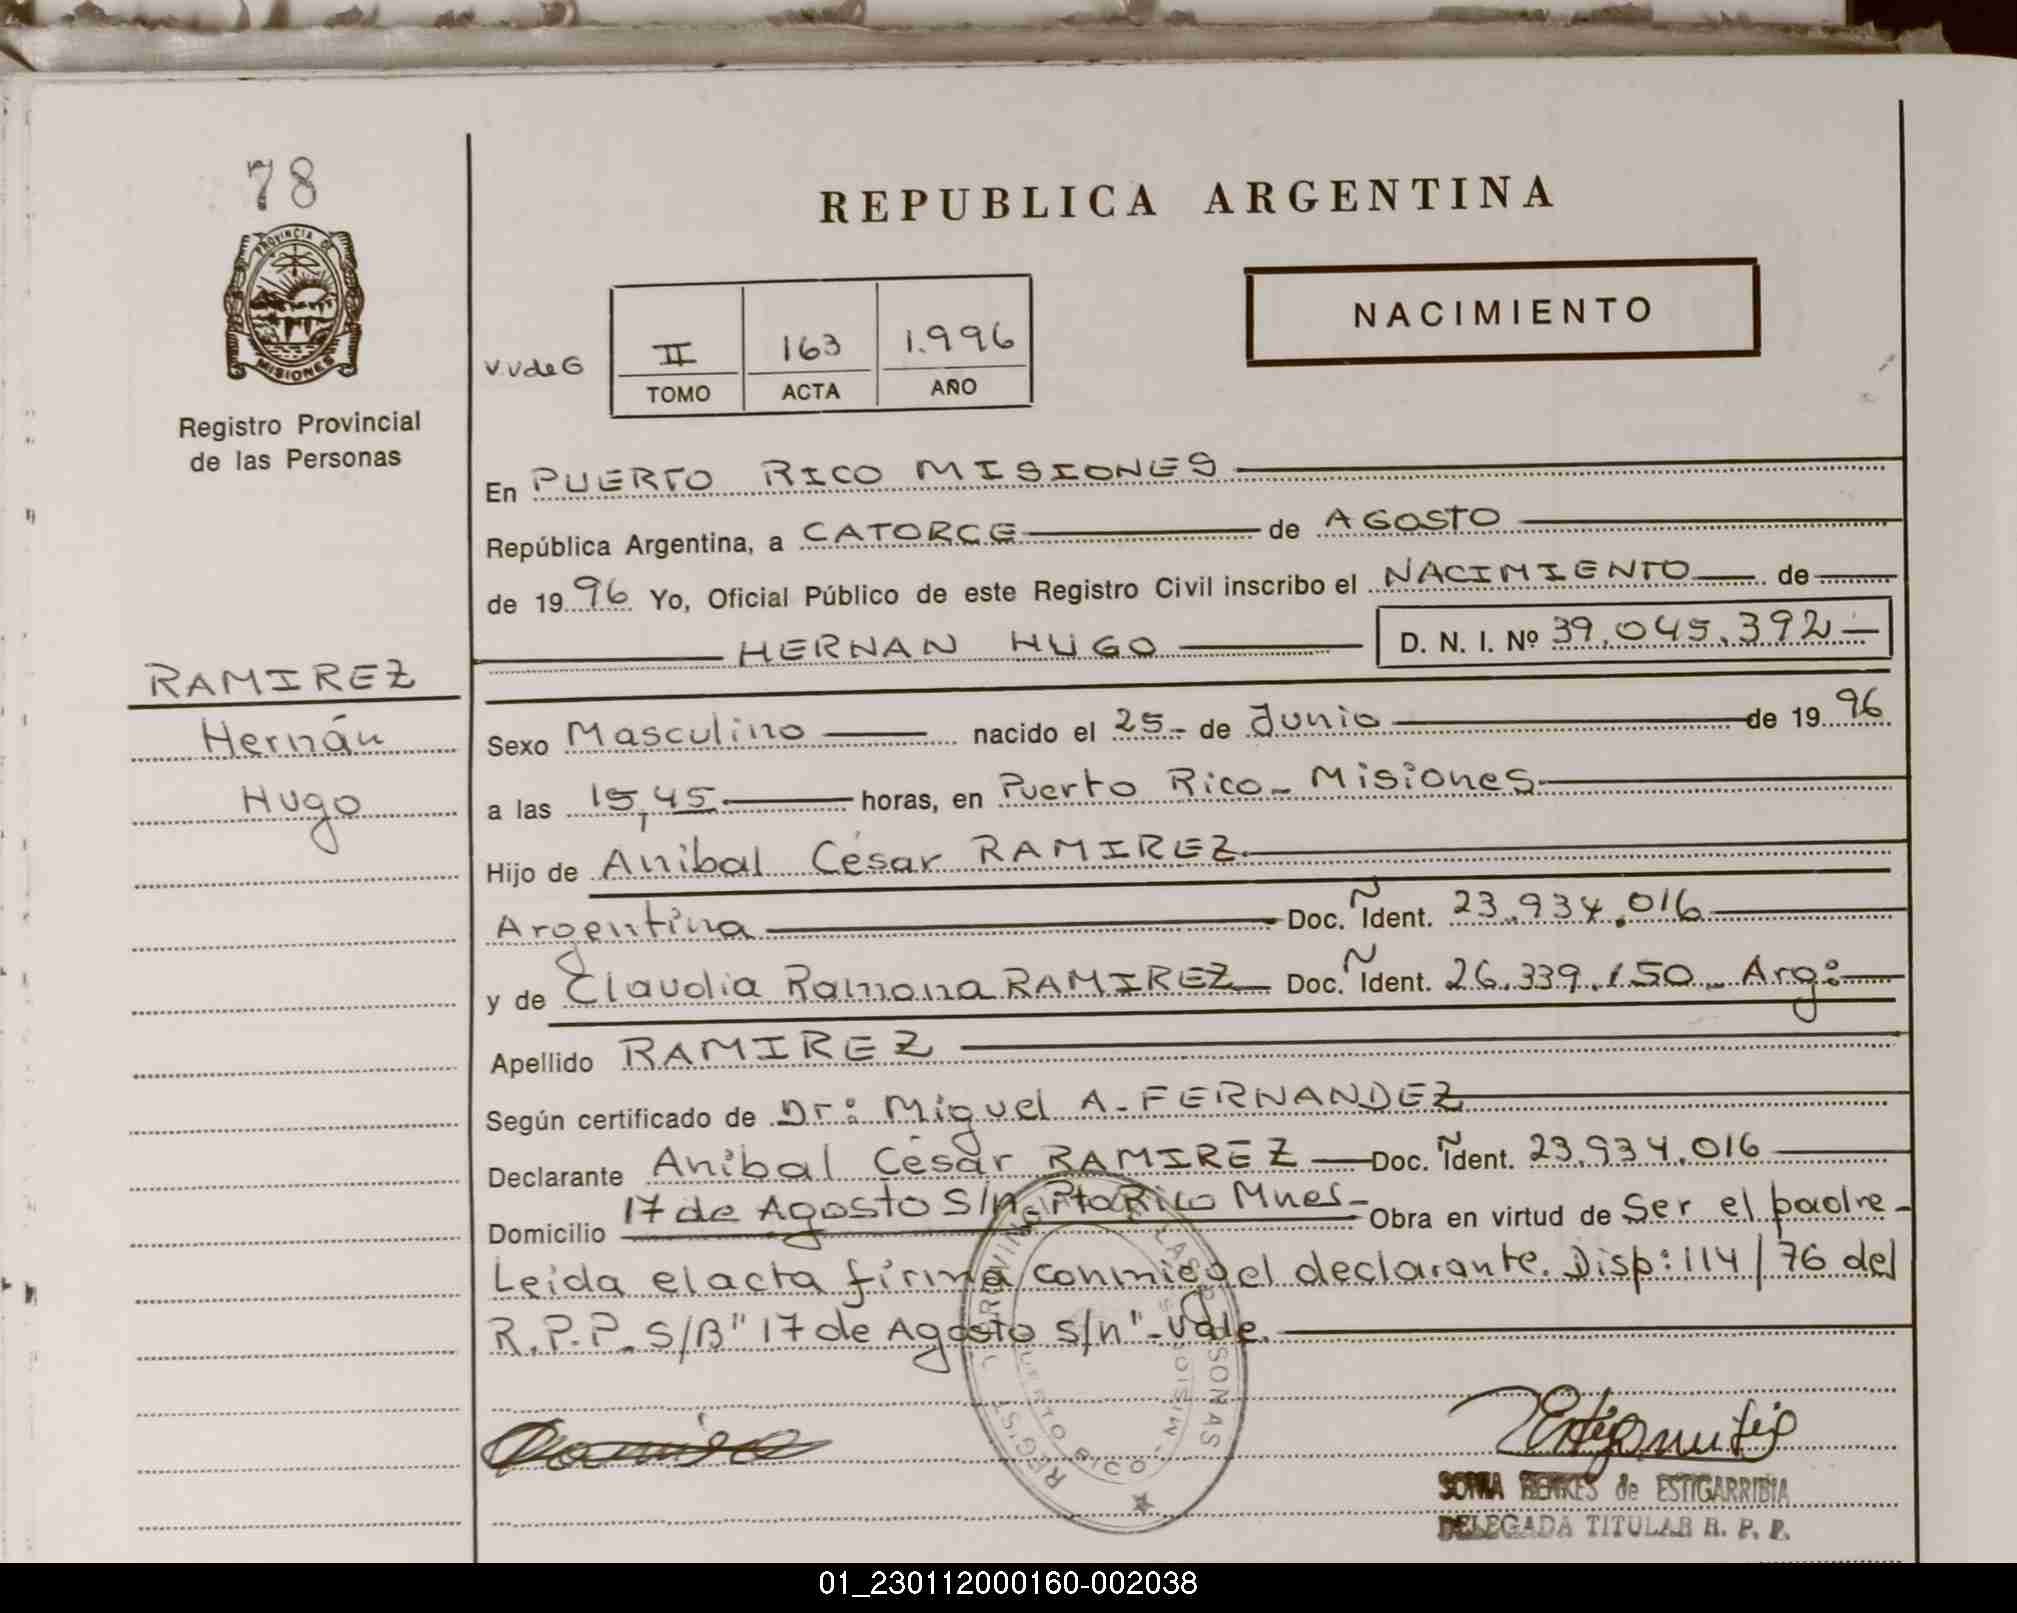 78
PROVINCIA DE
MISIONES
Registro Provincial
de las Personas
REPUBLICA ARGENTINA
NACIMIENTO
VVdeG
II 163 1.996
TOMO ACTA AÑO
En PUERTO RICO MISIONES
República Argentina, a CATORCE de AGOSTO
de 1996 Yo, Oficial Público de este Registro Civil inscribo el NACIMIENTO de
HERNAN HUGO D. N. I. Nº 39.045.392
RAMIREZ
Hernán
Hugo
Sexo Masculino nacido el 25- de Junio de 1996
a las 15,45 horas, en Puerto Rico- Misiones
Hijo de Anibal César RAMIREZ
Argentina Doc. Ñ Ident. 23.934.016
y de Claudia Ramona RAMIREZ Doc. Ñ Ident. 26.339.150- Arg:
Apellido RAMIREZ
Según certificado de Dr: Miguel A. FERNANDEZ
Declarante Anibal César RAMIREZ Doc. Ñ Ident. 23.934.016
Domicilio 17 de Agosto S/n- Pto Rico Mnes- Obra en virtud de Ser el padre-
Leida el acta firma conmigo el declarante. Disp: 114/76 del
R.P.P. S/B "17 de Agosto s/n"- Vale.
REGISTRO PROVINCIAL DE LAS PERSONAS
PUERTO RICO - MISIONES
SONIA BENKES de ESTIGARRIBIA
DELEGADA TITULAR R. P. P.
01_230112000160-002038